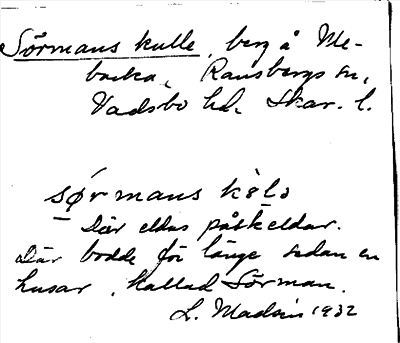 Sörmans kulle, berg å Me-
backa, Ransbergs sn,
Vadsbo hd. Skar. l.
sørmans kɵlɔ
Där eldas påskeldar.
Där bodde för länge sedan en
husar, kallad Sörman.
L. 1932